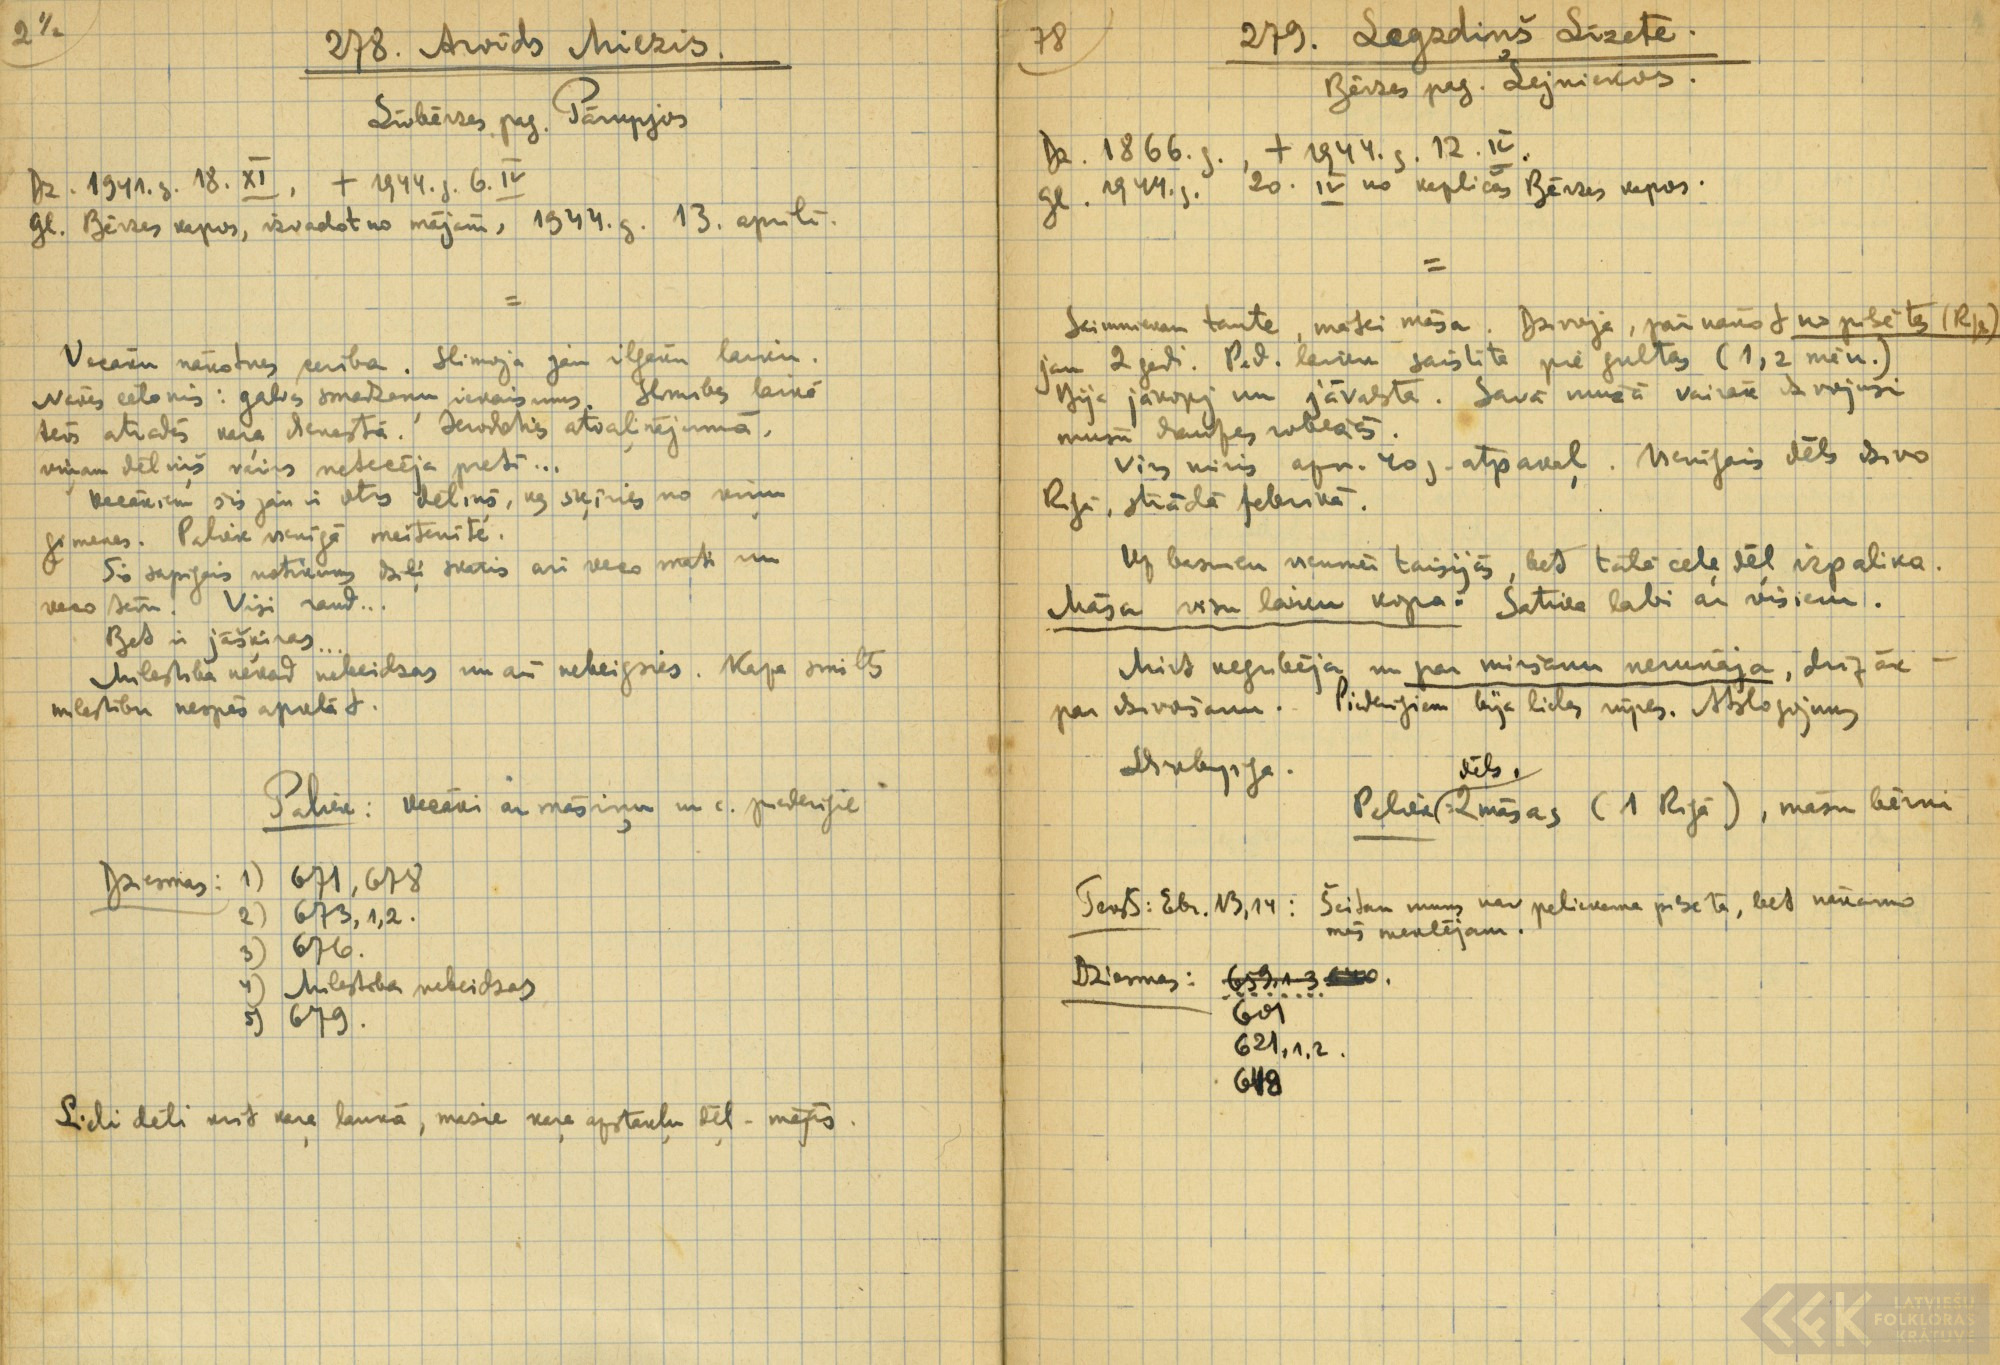 278. Arvīds Miezis.
Līvbērzes pag. Pārupjos
Dz. 1941.g. 18. XI, + 1944.g. 6. IV
Gl. Bērzes kapos, izvadot no mājām, 1944.g. 13. aprilī.
=
Vecāku nākotnes cerība. Slimoja jau ilgāku laiku.
Nāves cēlonis: galvas smadzeņu iekaisums. Slimības laikā
tēvs atradās kara dienestā. Ierodoties atvaļinājumā,
viņam dēliņš vairs netecēja pretī...
Vecākiem šis jau ir otrs dēliņš, kas šķiries no viņu
ģimenes. Paliek vienīgā meitenīte.
Šis sāpīgais notikums dziļi skāris arī veco māti un
veco tēvu. Visi raud...
Bet ir jāšķiras...
Mīlestība nekad nebeidzas un arī nebeigsies. Kapa smilts
mīlestību nespēs aprakt.
Paliek: vecāki ar māsiņu un c. piederīgie
Dziesmas: 1) 671, 678
2) 673, 1,2.
3) 676.
4) Mīlestība nebeidzas
5) 679.
Lieli dēli krīt kara laukā, mazie kara apstākļu dēļ - mājās.
78
279. Legzdiņš Līzete.
Bērzes pag. Lejniekos.
Dz. 1866.g., + 1944.g. 12. IV.
Gl. 1944.g. 20. IV no kapličas Bērzes kapos.
=
Saimniekam tante, mātei māsa. Dzīvoja, pārnākot no pilsētas (Rīga)
jau 2 gadi. Pēd. laiku saistīta pie gultas (1,2 mēn.)
Bija jākopj un jāvalsta. Savā mūžā vairāk dzīvojusi
mūsu draudzes robežās.
Vīrs miris apm. 40 g. atpakaļ. Vienīgais dēls dzīvo
Rīgā, strādā fabrikā.
Uz baznīcu vienmēr taisījās, bet tālā ceļa dēļ izpalika.
Māsa visu laiku kopa. Satika labi ar visiem.
Mirt negribēja un par miršanu nerunāja, drīzāk -
par dzīvošanu. Piederīgiem bija lielas rūpes. Atslogojums
dēls.
Paliek: 2 māsas (1 Rīgā), māsu bērni
Teksts: Ebr. 13,14: Šeitan mums nav paliekama pilsēta, bet nākamo
mēs meklējam.
Dziesmas: 659, 1-3
601
621, 1,2.
648
LATVIEŠU
FOLKLORAS
KRĀTUVE